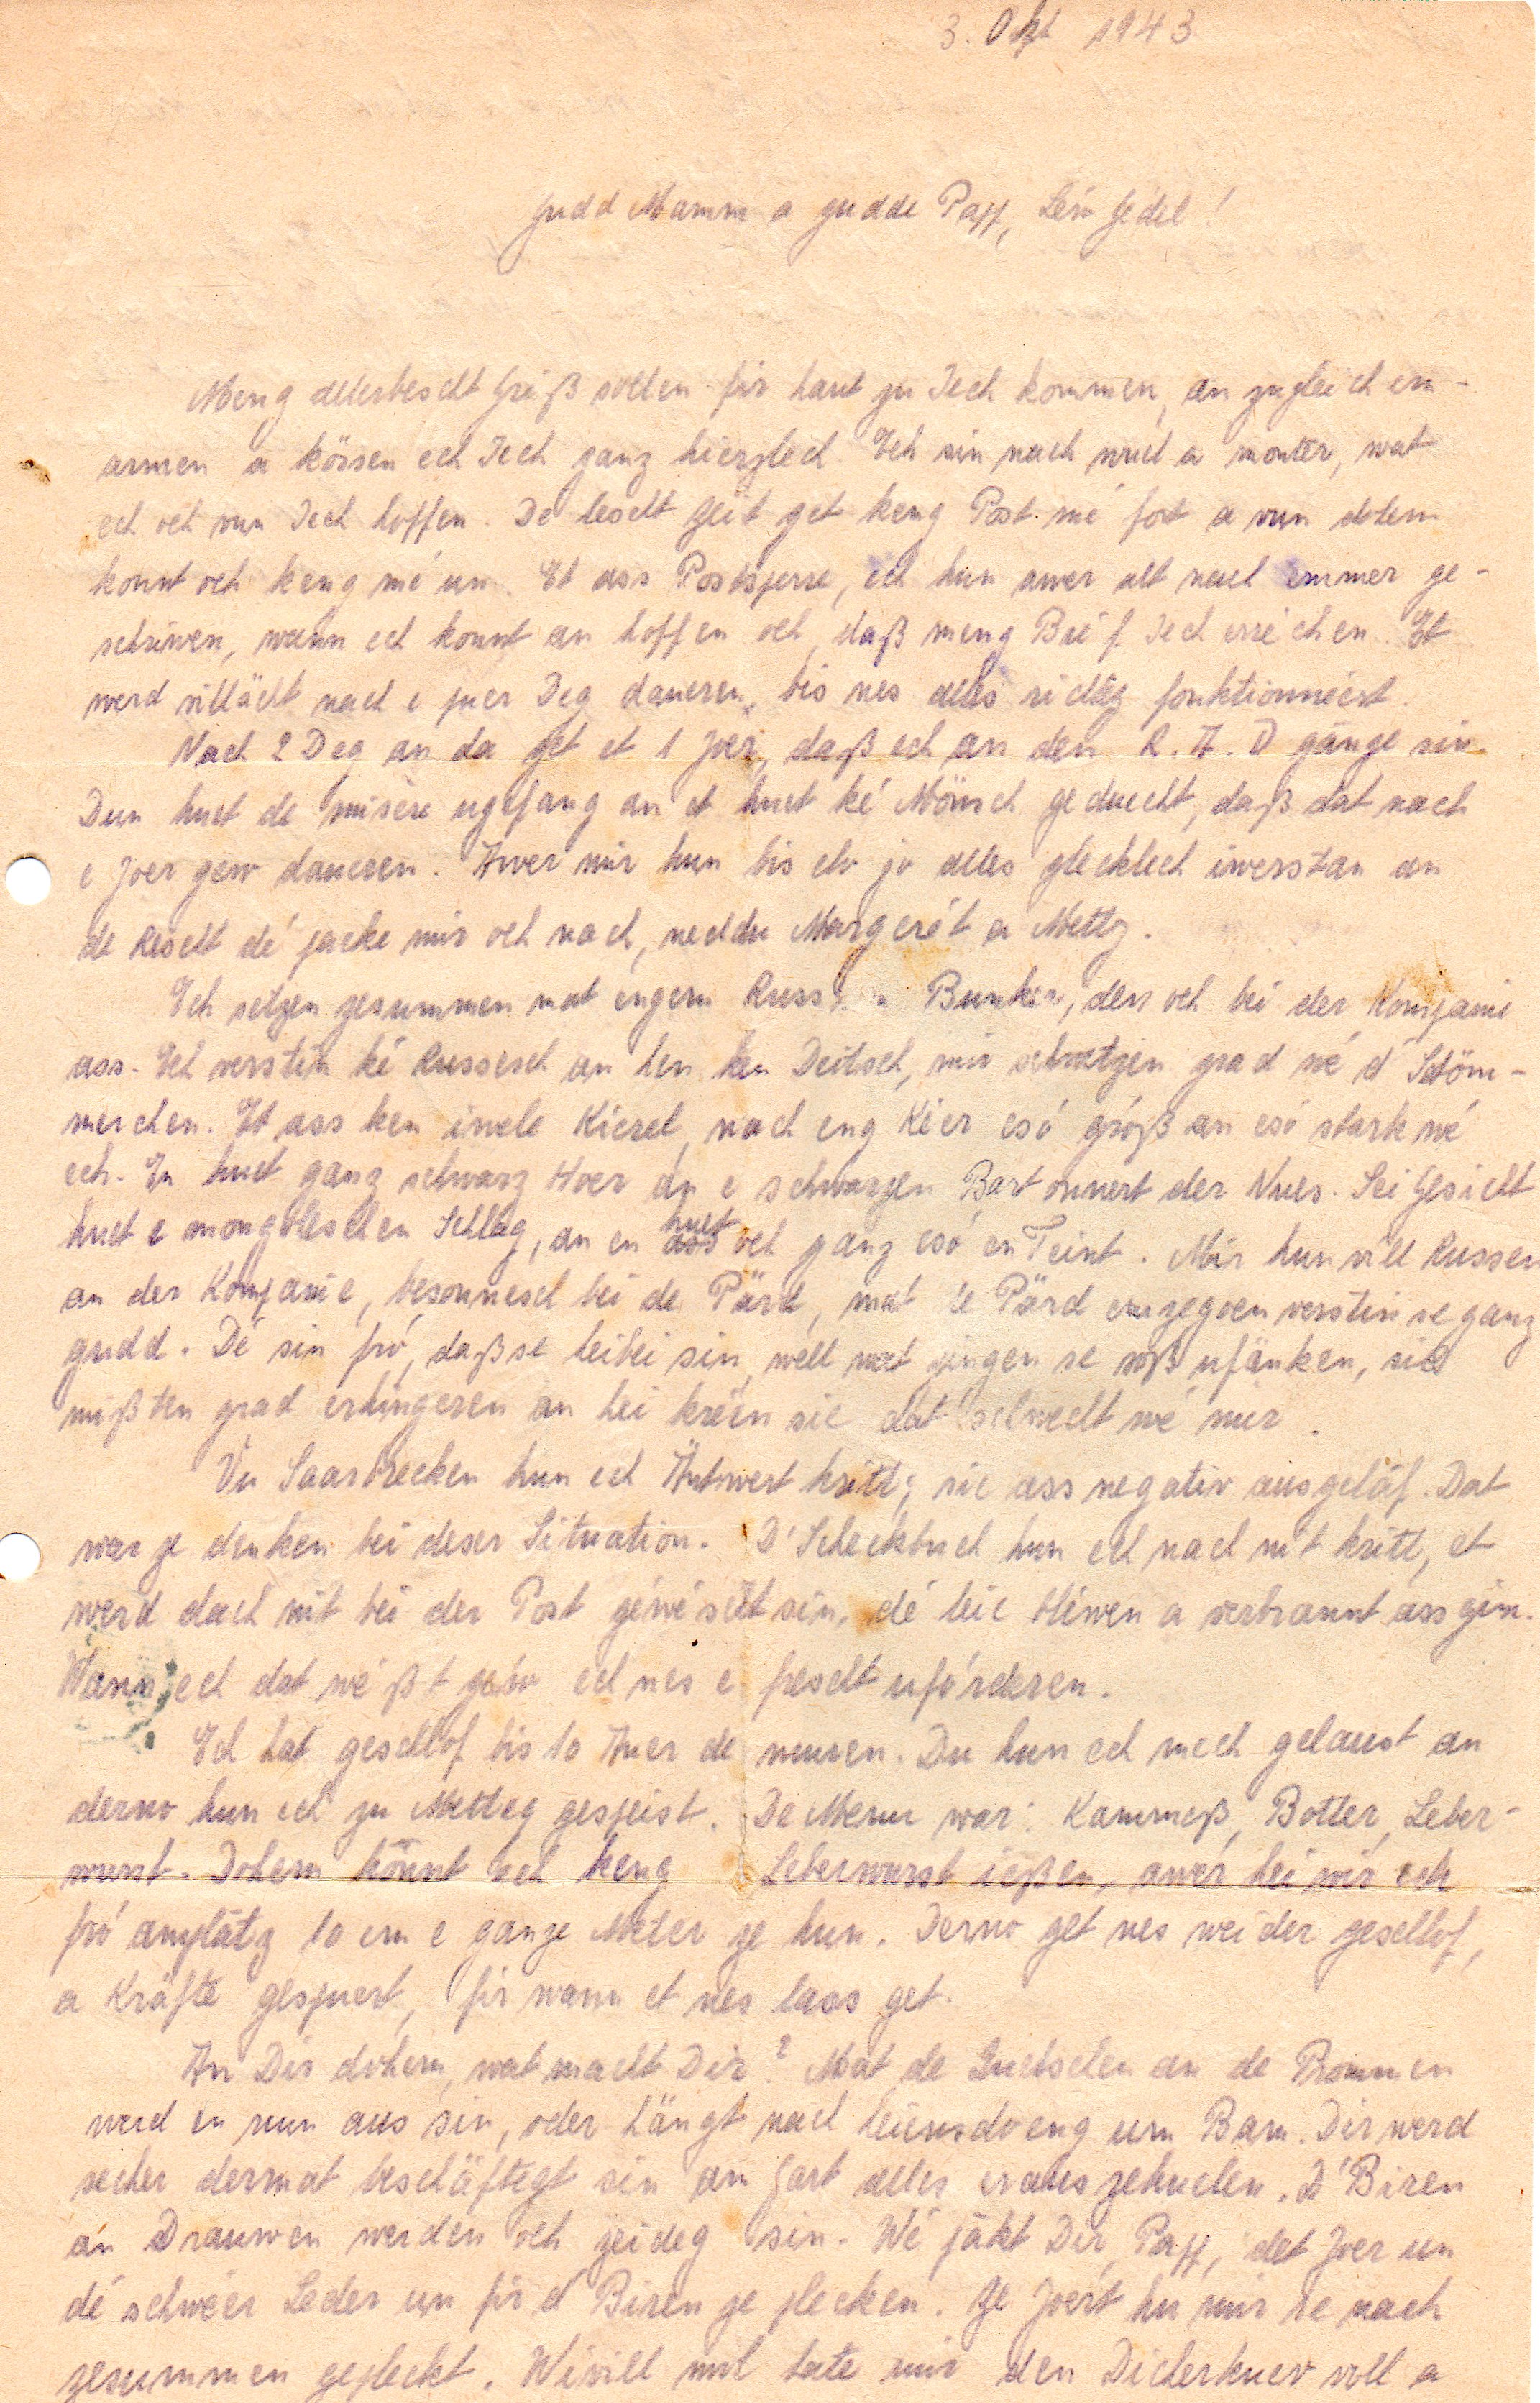 3. Okt 1943
Gudd Mamm a gudde Papp, Léin Jedel!
Meng allerbescht Griß sollen fir haut zu Iech kommen, an zugleich em-
armen a kössen ech Iech ganz hierzlech. Ech sin nach mud a monter, wat
ech och vun Iech hoffen. De lescht Zeit get keng Post mé fort a vun dohem
konnt och keng mé un. Et ass Postsperre, ech hun awer alt nach emmer ge-
schriwen, wann ech konnt an hoffen och, daß meng Briéf Iech erréchen. Et
werd villächt nach e puer Deg daueren, bis nes alles richteg fonktionnéert.
Nach 2 Deg an da get et 1 Joer, daß ech an den R.A.D gange sin.
Dun huet de misère ugefang an et huet ké Mönsch geduecht, daß dat nach
e Joer gew daueren. Awer mir hun bis elo jo alles glecklech iwerstan an
de Rescht dé packe mir och nach, neddu Margerét a Mettz.
Ech setzen zesummen mat engem Russ Bunker, den och bei der Kompanie
ass. Ech verstin ké Russesch an hen ken Deitsch, mir schwetzen grad wé d' Stöm-
merchen. Et ass ken iwele Kierel, nach eng Kéer esó gróß an esó stark wé
ech. En huet ganz schwarz Hoer an e schwarzen Bart onnert der Nues. Sei Gesicht
huet e mongoleschen Schlag, an en huet och ganz esó en Teint. Mir hun vill Russen
an der Kompanie, besonnesch bei de Pärd, mat de Pärd emzegoen verstin se ganz
gudd. Dé sin fró, daß se heibei sin, well wat gingen se soß ufänken, sie
mißten grad erhingeren an hei kréen sie dat selwecht wé mir.
Vu Saarbrecken hun ech Äntwert kritt; sie ass negativ ausgeláf. Dat
war ze denken bei deser Situation. D'Scheckbuch hun ech nach nit kritt, et
werd dach nit bei der Post géwéscht sin, dé heie Héwen a verbrannt ass gin.
Wann ech dat wéßt géw ech nes e frescht ufórderen.
Ech hat geschlof bis 10 Auer de muren. Du hun ech mech gelaust an
derno hun ech zu Metteg gespeist. De Menu war: Kammeß, Botter, Leber-
wurst. Dohem konnt ech keng Leberwurst ießen, awer hei wir ech
fró anplätz 10 cm e ganze Meter ze hun. Derno get nes weider geschlof,
a Kräfte gespuert, fir wann et nes lass get.
An Dir dohem, wat macht Dir? Mat de Quetschen an de Prommen
werd en nun aus sin, oder hängt nach heiensdoeng um Bam. Dir werd
secher dermat beschäftegt sin am Gart alles erauszehuelen. D'Biren
an Drauwen werden och zeideg sin. Wé päkt Dir, Papp, det Joer un
dé schwéer Leder un fir d'Biren ze plecken. Ze Joert hu mir se nach
zesummen gepleckt. Wivill mol hate mir den Dicherkuerv voll a